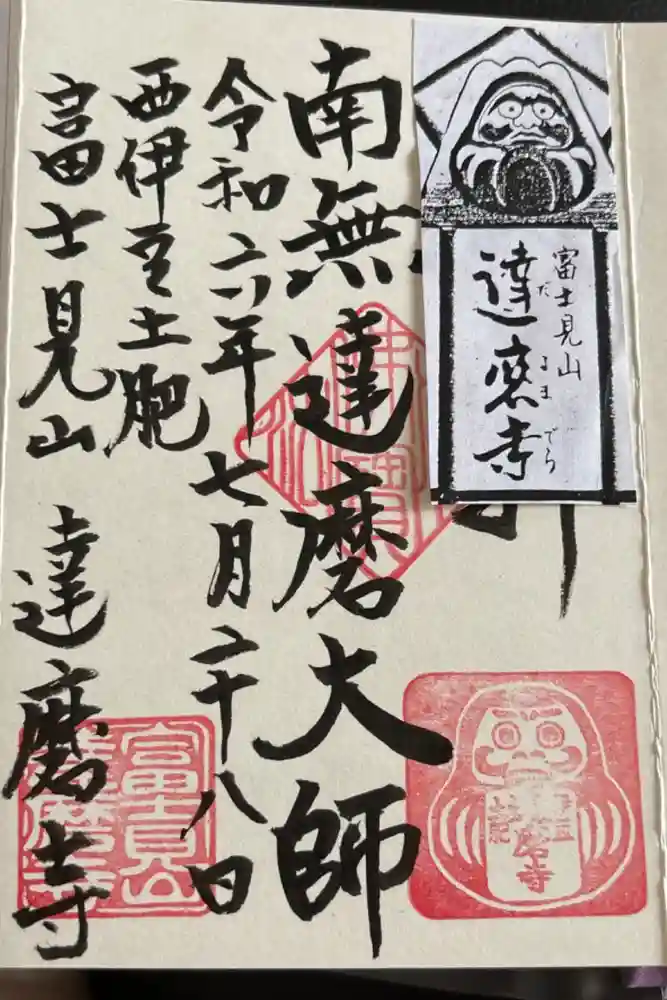 富士見山
達磨寺
だるまでら
南無達磨大師
令和六年七月二十八日
西伊豆土肥
富士見山 達磨寺
富士見山
達磨寺